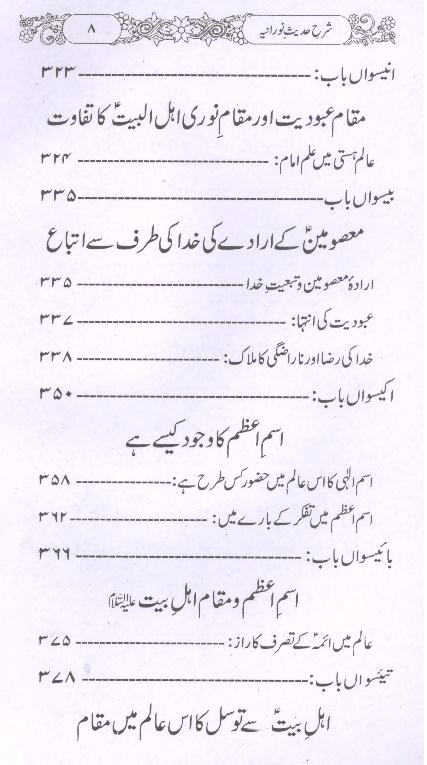 شرح حدیث نورانیہ ۸
انیسواں باب: ------------------------------ ۳۲۳
مقام عبودیت اور مقامِ نوری اہل البیتؑ کا تفاوت
عالم ہستی میں علم امام: ------------------------- ۳۲۴
بیسواں باب------------------------------- ۳۳۵
معصومینؑ کے ارادے کی خدا کی طرف سے اتباع
ارادۂ معصومین و تبعیتِ خدا---------------------- ۳۳۵
عبودیت کی انتہا: --------------------------- ۳۳۷
خدا کی رضا اور ناراضگی کا ملاک: ------------------ ۳۳۸
اکیسواں باب: ------------------------------ ۳۵۰
اسمِ اعظم کا وجود کیسے ہے
اسم الٰہی کا اس عالم میں حضور کس طرح ہے: ------------ ۳۵۸
اسم اعظم میں تفکر کے بارے میں: ----------------- ۳۶۲
بائیسواں باب: ----------------------------- ۳۶۶
اسمِ اعظم و مقام اہلِ بیت علیہم السلام
عالم میں ائمہؑ کے تصرف کا راز: ------------------- ۳۷۵
تیئسواں باب: ----------------------------- ۳۷۸
اہلِ بیتؑ سے توسل کا اس عالم میں مقام